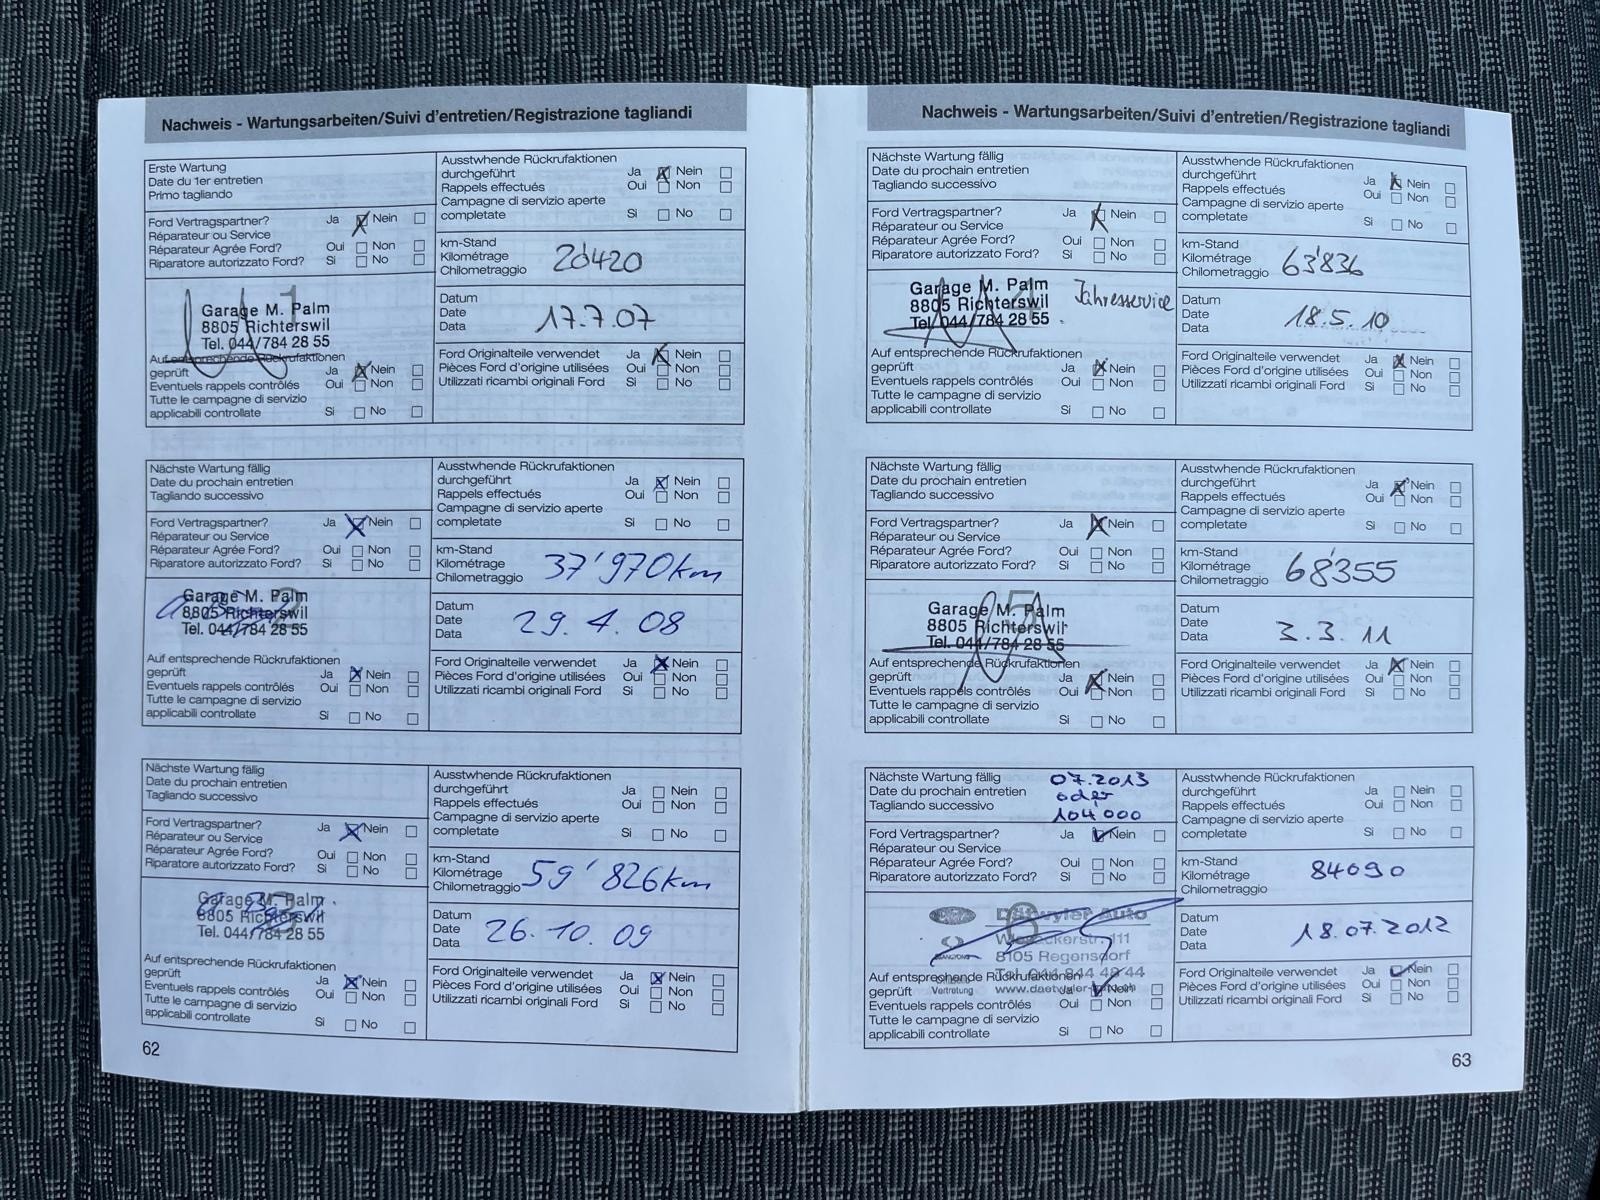 Nachweis - Wartungsarbeiten/Suivi d'entretien/Registrazione tagliandi
Erste Wartung
Date du 1er entretien
Primo tagliando
Ausstwhende Rückrufaktionen
durchgeführt Ja Nein
Rappels effectués Oui Non
Campagne di servizio aperte
completate Si No
Ford Vertragspartner? Ja Nein
Réparateur ou Service
Réparateur Agrée Ford? Oui Non
Riparatore autorizzato Ford? Si No
km-Stand
Kilométrage
Chilometraggio
20'420
1
Garage M. Palm
8805 Richterswil
Tel. 044/784 28 55
Datum
Date
Data
17.7.07
Auf entsprechende Rückrufaktionen
geprüft Ja Nein
Eventuels rappels contrôlés Oui Non
Tutte le campagne di servizio
applicabili controllate Si No
Ford Originalteile verwendet Ja Nein
Pièces Ford d'origine utilisées Oui Non
Utilizzati ricambi originali Ford Si No
Nächste Wartung fällig
Date du prochain entretien
Tagliando successivo
Ausstwhende Rückrufaktionen
durchgeführt Ja Nein
Rappels effectués Oui Non
Campagne di servizio aperte
completate Si No
Ford Vertragspartner? Ja Nein
Réparateur ou Service
Réparateur Agrée Ford? Oui Non
Riparatore autorizzato Ford? Si No
km-Stand
Kilométrage
Chilometraggio
37'970km
Garage M. Palm
8805 Richterswil
Tel. 044/784 28 55
Datum
Date
Data
29.4.08
Auf entsprechende Rückrufaktionen
geprüft Ja Nein
Eventuels rappels contrôlés Oui Non
Tutte le campagne di servizio
applicabili controllate Si No
Ford Originalteile verwendet Ja Nein
Pièces Ford d'origine utilisées Oui Non
Utilizzati ricambi originali Ford Si No
Nächste Wartung fällig
Date du prochain entretien
Tagliando successivo
Ausstwhende Rückrufaktionen
durchgeführt Ja Nein
Rappels effectués Oui Non
Campagne di servizio aperte
completate Si No
Ford Vertragspartner? Ja Nein
Réparateur ou Service
Réparateur Agrée Ford? Oui Non
Riparatore autorizzato Ford? Si No
km-Stand
Kilométrage
Chilometraggio
59'826km
Garage M. Palm
8805 Richterswil
Tel. 044/784 28 55
Datum
Date
Data
26.10.09
Auf entsprechende Rückrufaktionen
geprüft Ja Nein
Eventuels rappels contrôlés Oui Non
Tutte le campagne di servizio
applicabili controllate Si No
Ford Originalteile verwendet Ja Nein
Pièces Ford d'origine utilisées Oui Non
Utilizzati ricambi originali Ford Si No
62
Nachweis - Wartungsarbeiten/Suivi d'entretien/Registrazione tagliandi
Nächste Wartung fällig
Date du prochain entretien
Tagliando successivo
Ausstwhende Rückrufaktionen
durchgeführt Ja Nein
Rappels effectués Oui Non
Campagne di servizio aperte
completate Si No
Ford Vertragspartner? Ja Nein
Réparateur ou Service
Réparateur Agrée Ford? Oui Non
Riparatore autorizzato Ford? Si No
km-Stand
Kilométrage
Chilometraggio
63'836
4
Garage M. Palm
8805 Richterswil
Tel. 044/784 28 55
Jahresservice
Datum
Date
Data
18.5.10
Auf entsprechende Rückrufaktionen
geprüft Ja Nein
Eventuels rappels contrôlés Oui Non
Tutte le campagne di servizio
applicabili controllate Si No
Ford Originalteile verwendet Ja Nein
Pièces Ford d'origine utilisées Oui Non
Utilizzati ricambi originali Ford Si No
Nächste Wartung fällig
Date du prochain entretien
Tagliando successivo
Ausstwhende Rückrufaktionen
durchgeführt Ja Nein
Rappels effectués Oui Non
Campagne di servizio aperte
completate Si No
Ford Vertragspartner? Ja Nein
Réparateur ou Service
Réparateur Agrée Ford? Oui Non
Riparatore autorizzato Ford? Si No
km-Stand
Kilométrage
Chilometraggio
68'355
5
Garage M. Palm
8805 Richterswil
Tel. 044/784 28 55
Datum
Date
Data
3.3.11
Auf entsprechende Rückrufaktionen
geprüft Ja Nein
Eventuels rappels contrôlés Oui Non
Tutte le campagne di servizio
applicabili controllate Si No
Ford Originalteile verwendet Ja Nein
Pièces Ford d'origine utilisées Oui Non
Utilizzati ricambi originali Ford Si No
Nächste Wartung fällig 07.2013
Date du prochain entretien oder
Tagliando successivo 104000
Ausstwhende Rückrufaktionen
durchgeführt Ja Nein
Rappels effectués Oui Non
Campagne di servizio aperte
completate Si No
Ford Vertragspartner? Ja Nein
Réparateur ou Service
Réparateur Agrée Ford? Oui Non
Riparatore autorizzato Ford? Si No
km-Stand
Kilométrage
Chilometraggio
84090
6
Dätwyler Auto
111
8105 Regensdorf
Vertretung
Datum
Date
Data
18.07.2012
Auf entsprechende Rückrufaktionen
geprüft Ja Nein
Eventuels rappels contrôlés Oui Non
Tutte le campagne di servizio
applicabili controllate Si No
Ford Originalteile verwendet Ja Nein
Pièces Ford d'origine utilisées Oui Non
Utilizzati ricambi originali Ford Si No
63